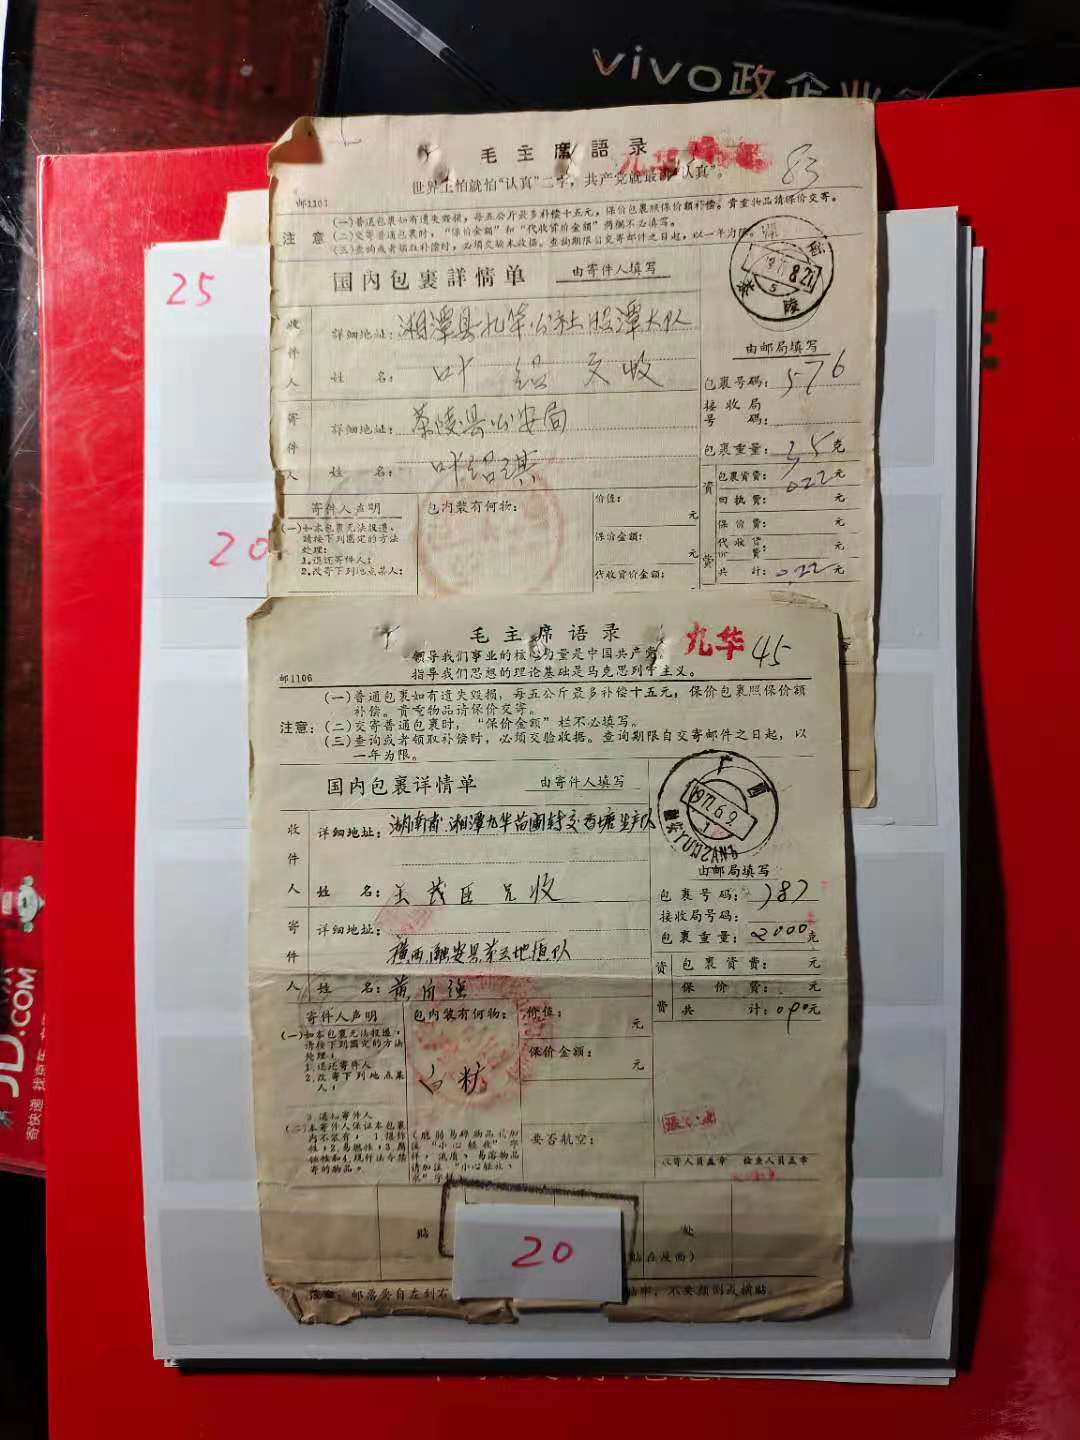 vivo政企业
25
20
毛主席語录
九华
世界上怕就怕“认真”二字，共产党就最讲“认真”。
83
邮1101
注意
(一)普通包裹如有遗失毁损，每五公斤最多补偿十五元，保价包裹照保价额补偿。贵重物品请保价交寄。
(二)交寄普通包裹时，“保价金额”和“代收货价金额”两栏不必填写。
(三)查询或者领取补偿时，必须交验本收据。查询期限自交寄邮件之日起，以一年为限。
国内包裹詳情单
由寄件人填写
8.21
茶陵
收件人
詳細地址：湘潭县九华公社股潭大队
姓名：叶绍文收
寄件人
詳細地址：茶陵县公安局
姓名：叶绍琪
由邮局填写
包裹号码：576
接收局号码：
包裹重量：克
资费
包裹资费：0.22元
回执费：元
保价费：元
代收货价费：元
共计：0.22元
寄件人声明
(一)如本包裹无法投递，请按下列圈定的方法处理：
1.退还寄件人；
2.改寄下列地点某人：
包内装有何物：
价值：元
保价金额：元
代收货价金额：
毛主席语录
九华
45
领导我们事业的核心力量是中国共产党。
指导我们思想的理论基础是马克思列宁主义。
邮1106
注意：
(一)普通包裹如有遗失毁损，每五公斤最多补偿十五元，保价包裹照保价额
补偿。贵重物品请保价交寄。
(二)交寄普通包裹时，“保价金额”栏不必填写。
(三)查询或者领取补偿时，必须交验收据。查询期限自交寄邮件之日起，以
一年为限。
国内包裹详情单
由寄件人填写
广西
1972.6.9
1
收件人
详细地址：湖南省湘潭九华苗圃转交塘生产队
姓名：王茂臣兄收
寄件人
详细地址：
广西融安县第三地植队
姓名：黄
由邮局填写
包裹号码：787
接收局号码：
包裹重量：2000克
资费
包裹资费：元
保价费：元
共计：0.90元
寄件人声明
(一)如本包裹无法投递，
请按下列圈定的方法
处理：
1.退还寄件人
2.改寄下列地点某
人：
3.退和寄件人
(二)本寄件人保证本包裹
内不装有：1.爆炸
性，2.易燃性，3.腐
蚀性和4.现行法令禁
寄的物品。
包内装有何物：
白矿
(脆弱易碎物品请加
注“小心轻放”字
样，流质、易溶物品
请加注
价值：元
保价金额：元
要否航空：
收寄人员盖章 检查人员盖章
贴
处
贴在反面)
20
邮票要自左到右
不要颠倒或横贴。
JD.COM